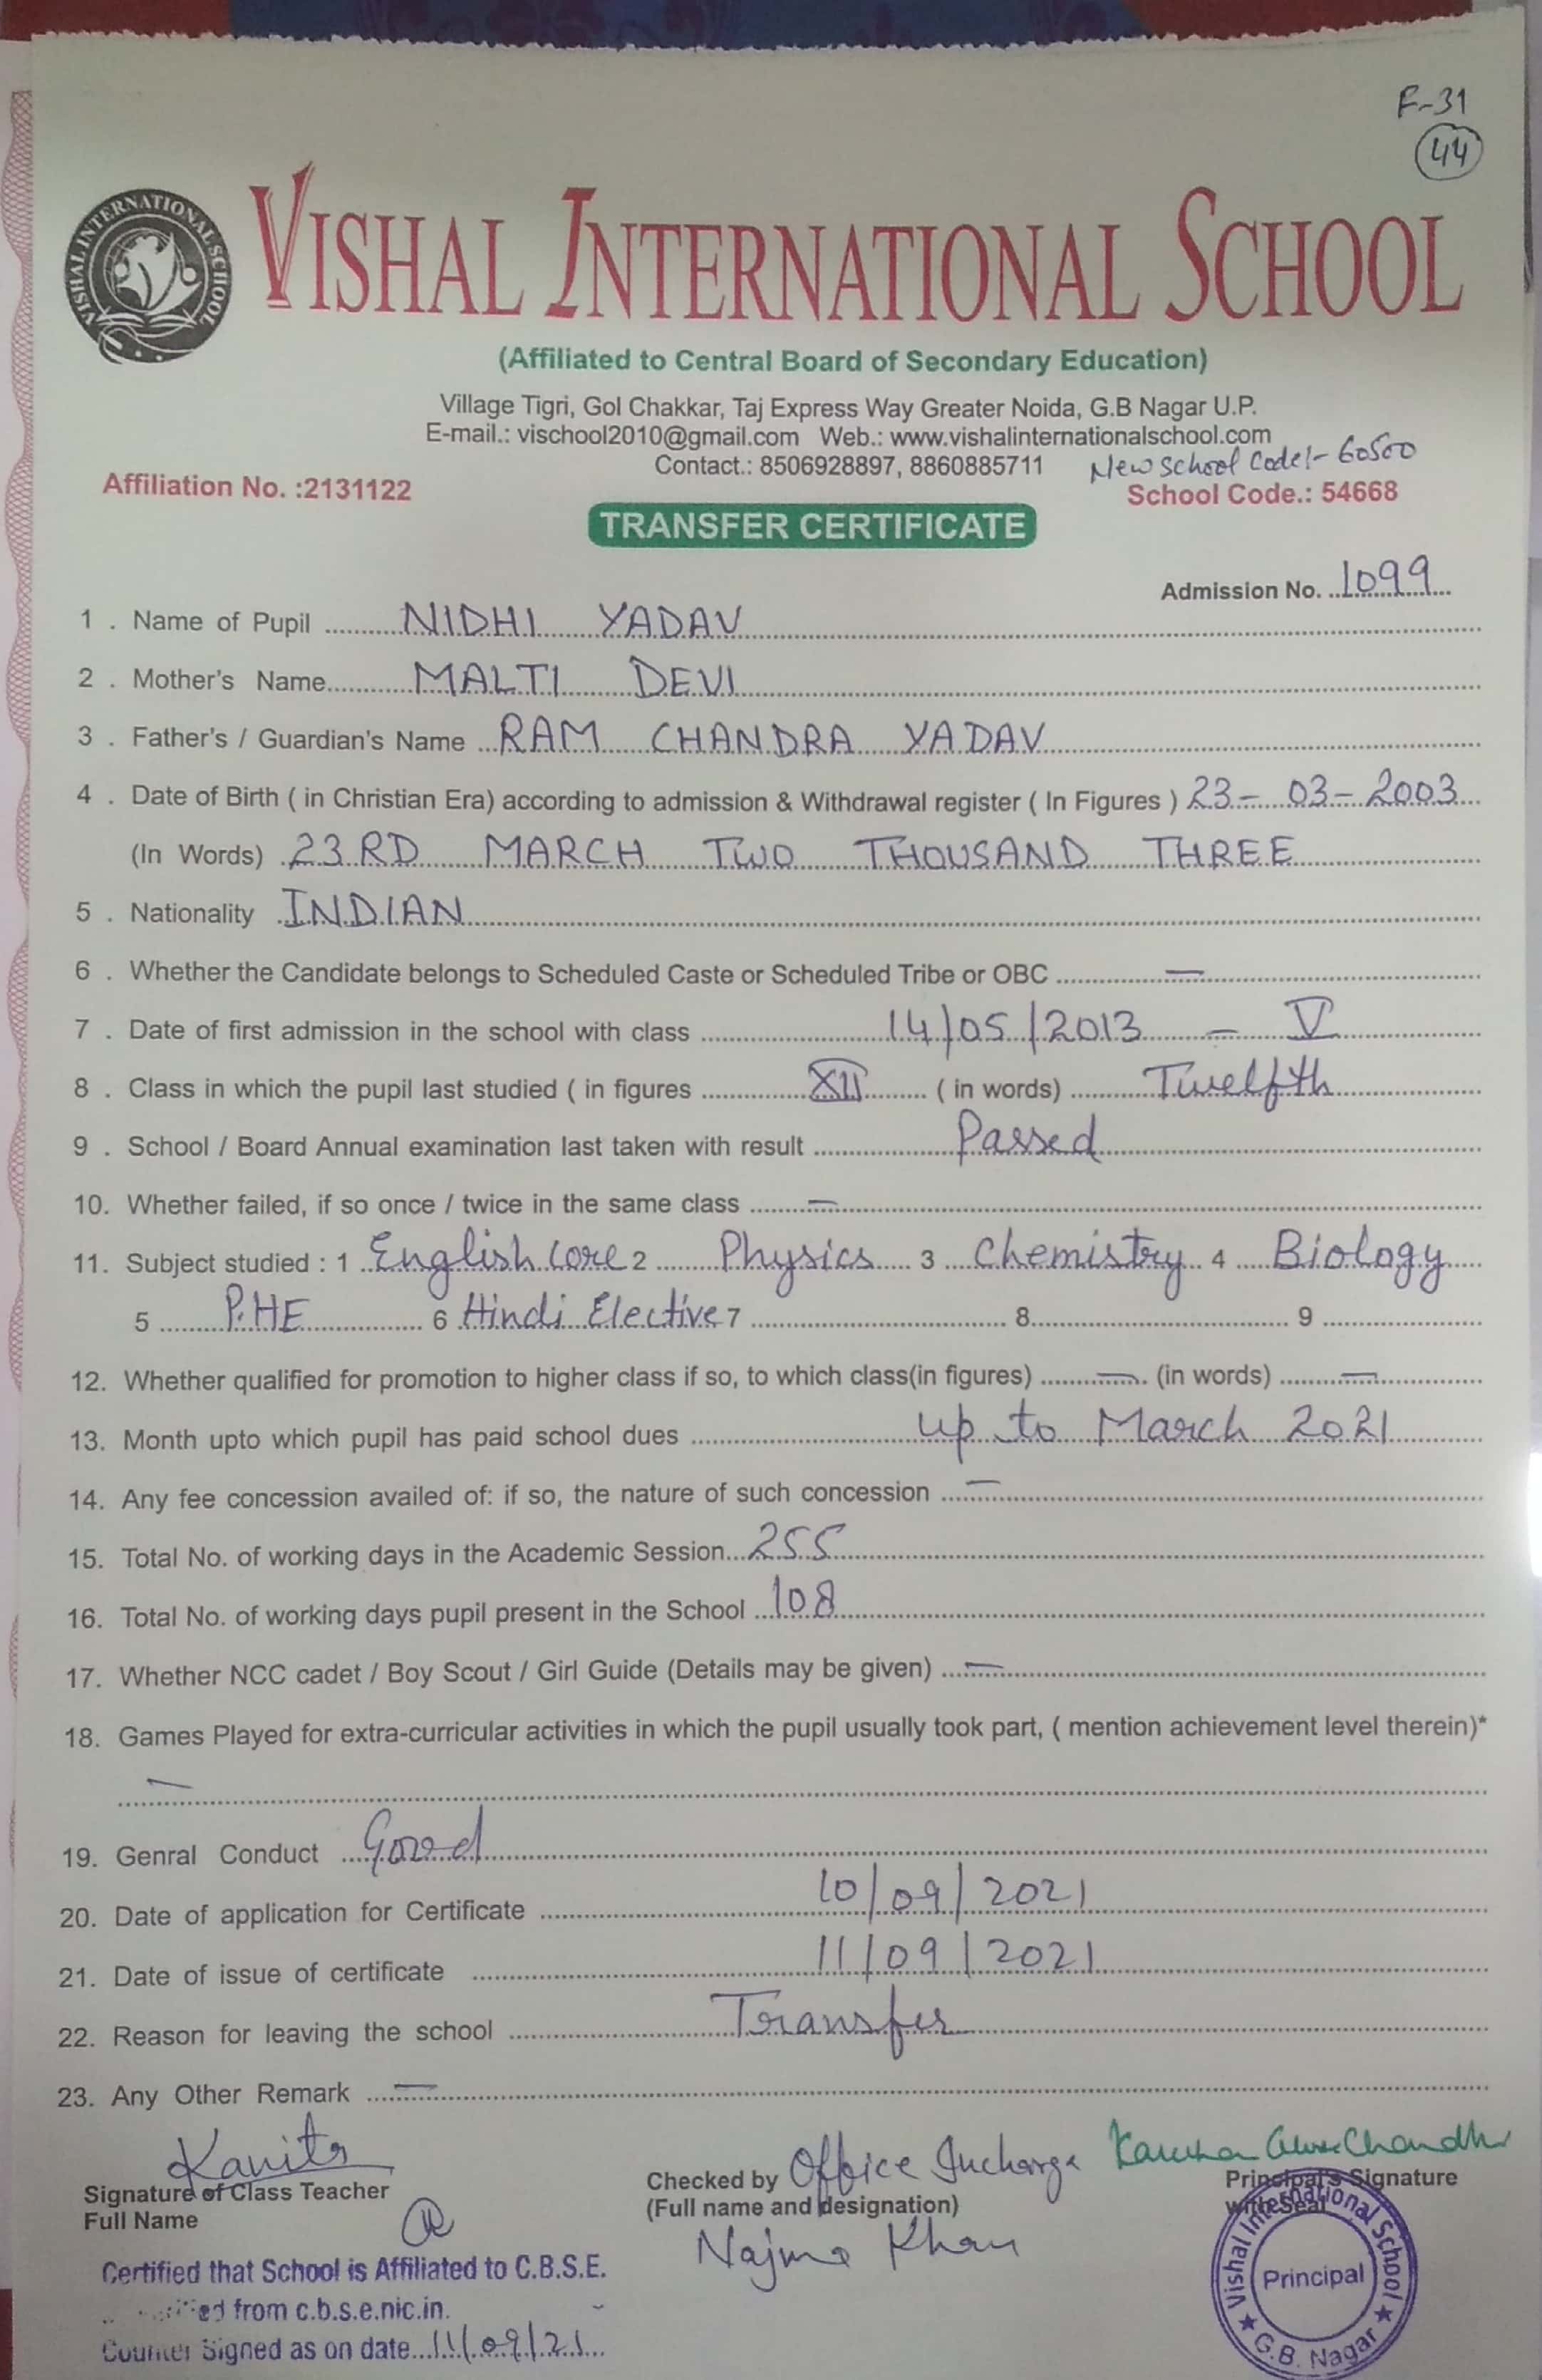 F-31
44
VISHAL INTERNATIONAL SCHOOL
VISHAL INTERNATIONAL SCHOOL
(Affiliated to Central Board of Secondary Education)
Village Tigri, Gol Chakkar, Taj Express Way Greater Noida, G.B Nagar U.P.
E-mail.: vischool2010@gmail.com Web.: www.vishalinternationalschool.com
Contact.: 8506928897, 8860885711 New school Code:- 60500
Affiliation No. :2131122 School Code.: 54668
TRANSFER CERTIFICATE
Admission No. 1099
1 . Name of Pupil NIDHI YADAV
2 . Mother's Name MALTI DEVI
3 . Father's / Guardian's Name RAM CHANDRA YADAV
4 . Date of Birth ( in Christian Era) according to admission & Withdrawal register ( In Figures ) 23-03-2003
(In Words) 23RD MARCH TWO THOUSAND THREE
5 . Nationality INDIAN
6 . Whether the Candidate belongs to Scheduled Caste or Scheduled Tribe or OBC —
7 . Date of first admission in the school with class 14/05/2013 - V
8 . Class in which the pupil last studied ( in figures XII ( in words) Twelfth
9 . School / Board Annual examination last taken with result Passed
10. Whether failed, if so once / twice in the same class —
11. Subject studied : 1 English Core 2 Physics 3 Chemistry 4 Biology
5 P.HE 6 Hindi Elective 7 8 9
12. Whether qualified for promotion to higher class if so, to which class(in figures) — (in words) —
13. Month upto which pupil has paid school dues up to March 2021
14. Any fee concession availed of: if so, the nature of such concession —
15. Total No. of working days in the Academic Session 255
16. Total No. of working days pupil present in the School 108
17. Whether NCC cadet / Boy Scout / Girl Guide (Details may be given) —
18. Games Played for extra-curricular activities in which the pupil usually took part, ( mention achievement level therein)*
—
19. Genral Conduct Good
20. Date of application for Certificate 10/09/2021
21. Date of issue of certificate 11/09/2021
22. Reason for leaving the school Transfer
23. Any Other Remark —
Kanita
Signature of Class Teacher
Full Name
Checked by Office Incharge
(Full name and designation)
Najma Khan
Principal's Signature
with Seal
Vishal International School
Principal
G.B. Nagar
Certified that School is Affiliated to C.B.S.E.
from c.b.s.e.nic.in.
Counter Signed as on date 11/09/21